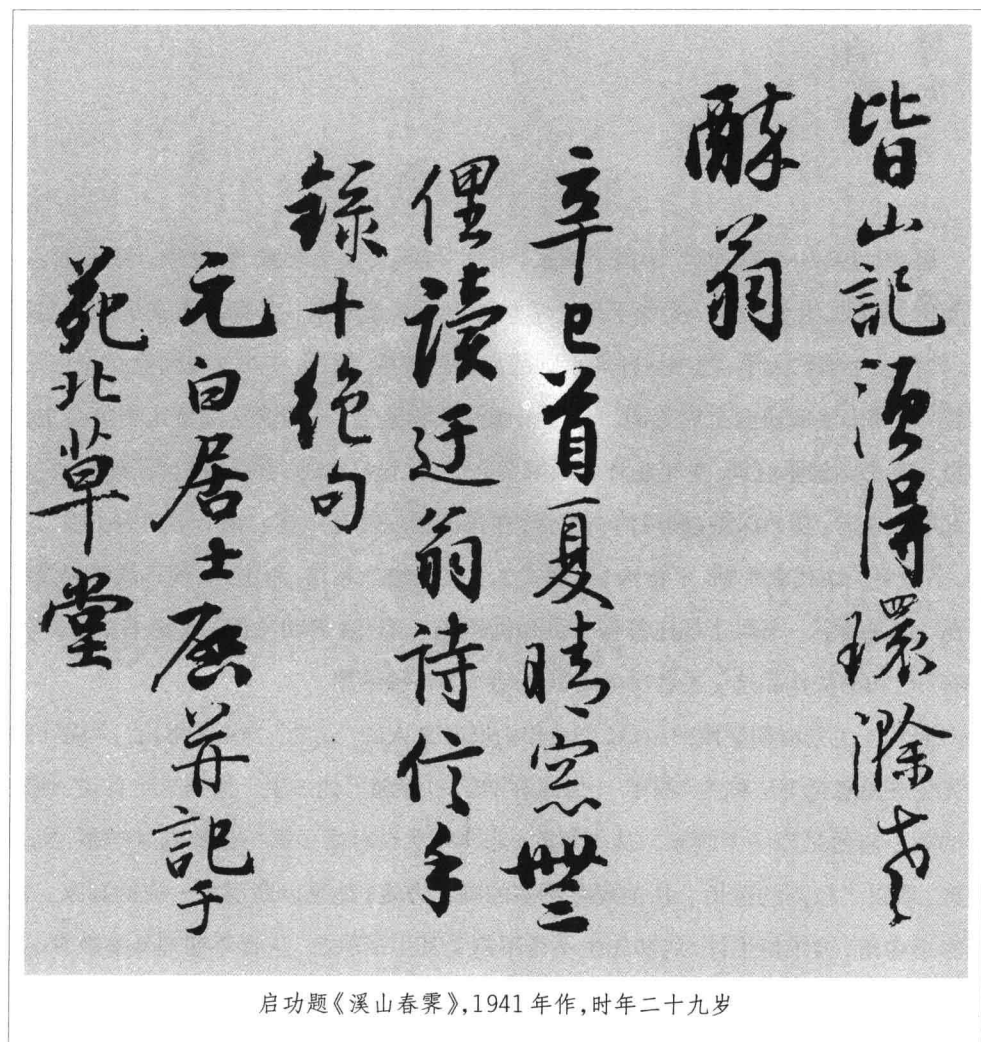 皆山記須得環滁老
醉翁
辛巳首夏晴窓無
俚讀迂翁詩信手
錄十絕句
元白居士啟并記于
苑北草堂
启功题《溪山春霁》,1941年作,时年二十九岁